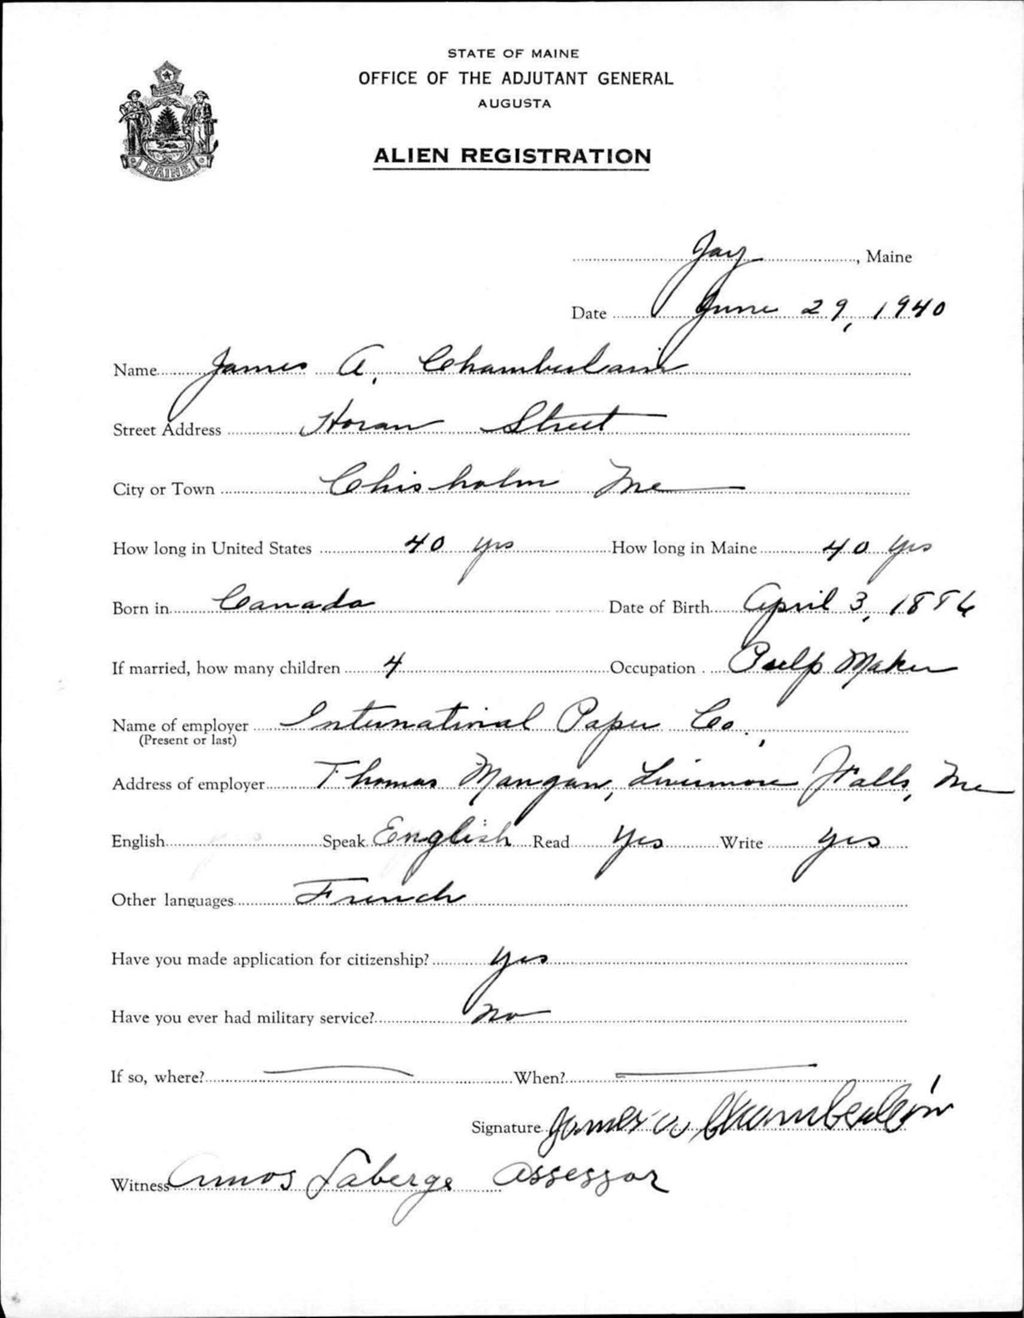 STATE OF MAINE
OFFICE OF THE ADJUTANT GENERAL
AUGUSTA
ALIEN REGISTRATION
MAINE
Jay, Maine
Date June 29, 1940
Name James A. Chamberlain
Street Address Horan Street
City or Town Chisholm Me
How long in United States 40 yrs How long in Maine 40 yrs
Born in Canada Date of Birth April 3, 1886
If married, how many children 4 Occupation Pulp Maker
Name of employer International Paper Co.
(Present or last)
Address of employer Thomas Mangan, Livermore Falls, Me
English Speak English Read yes Write yes
Other languages French
Have you made application for citizenship? yes
Have you ever had military service? no
If so, where? When?
Signature James A Chamberlain
Witness Amos Laberge Assessor